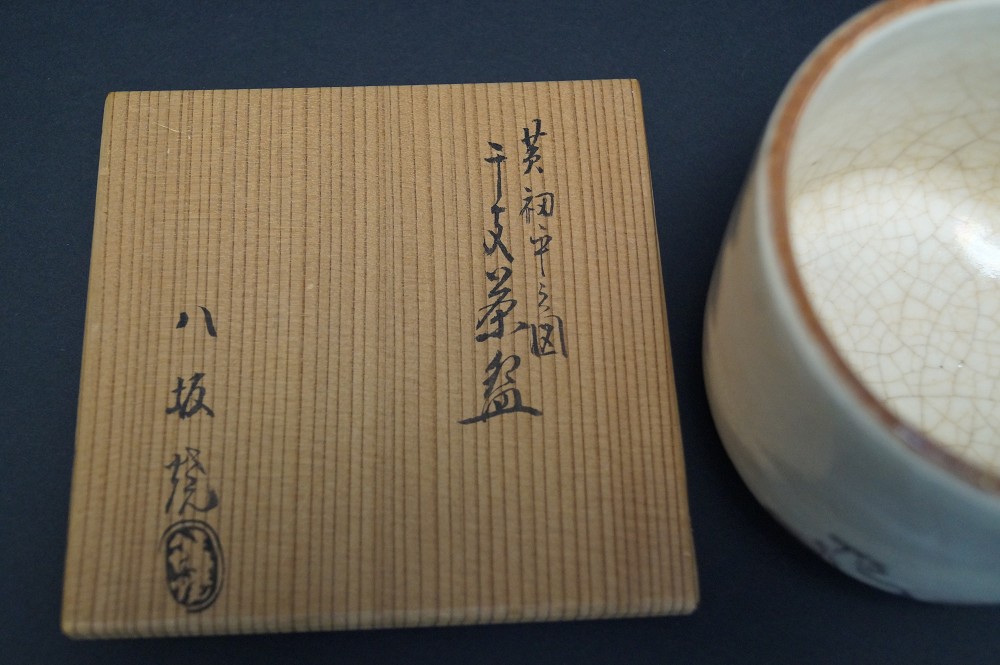 黄初平之図
干支茶盌
八坂焼